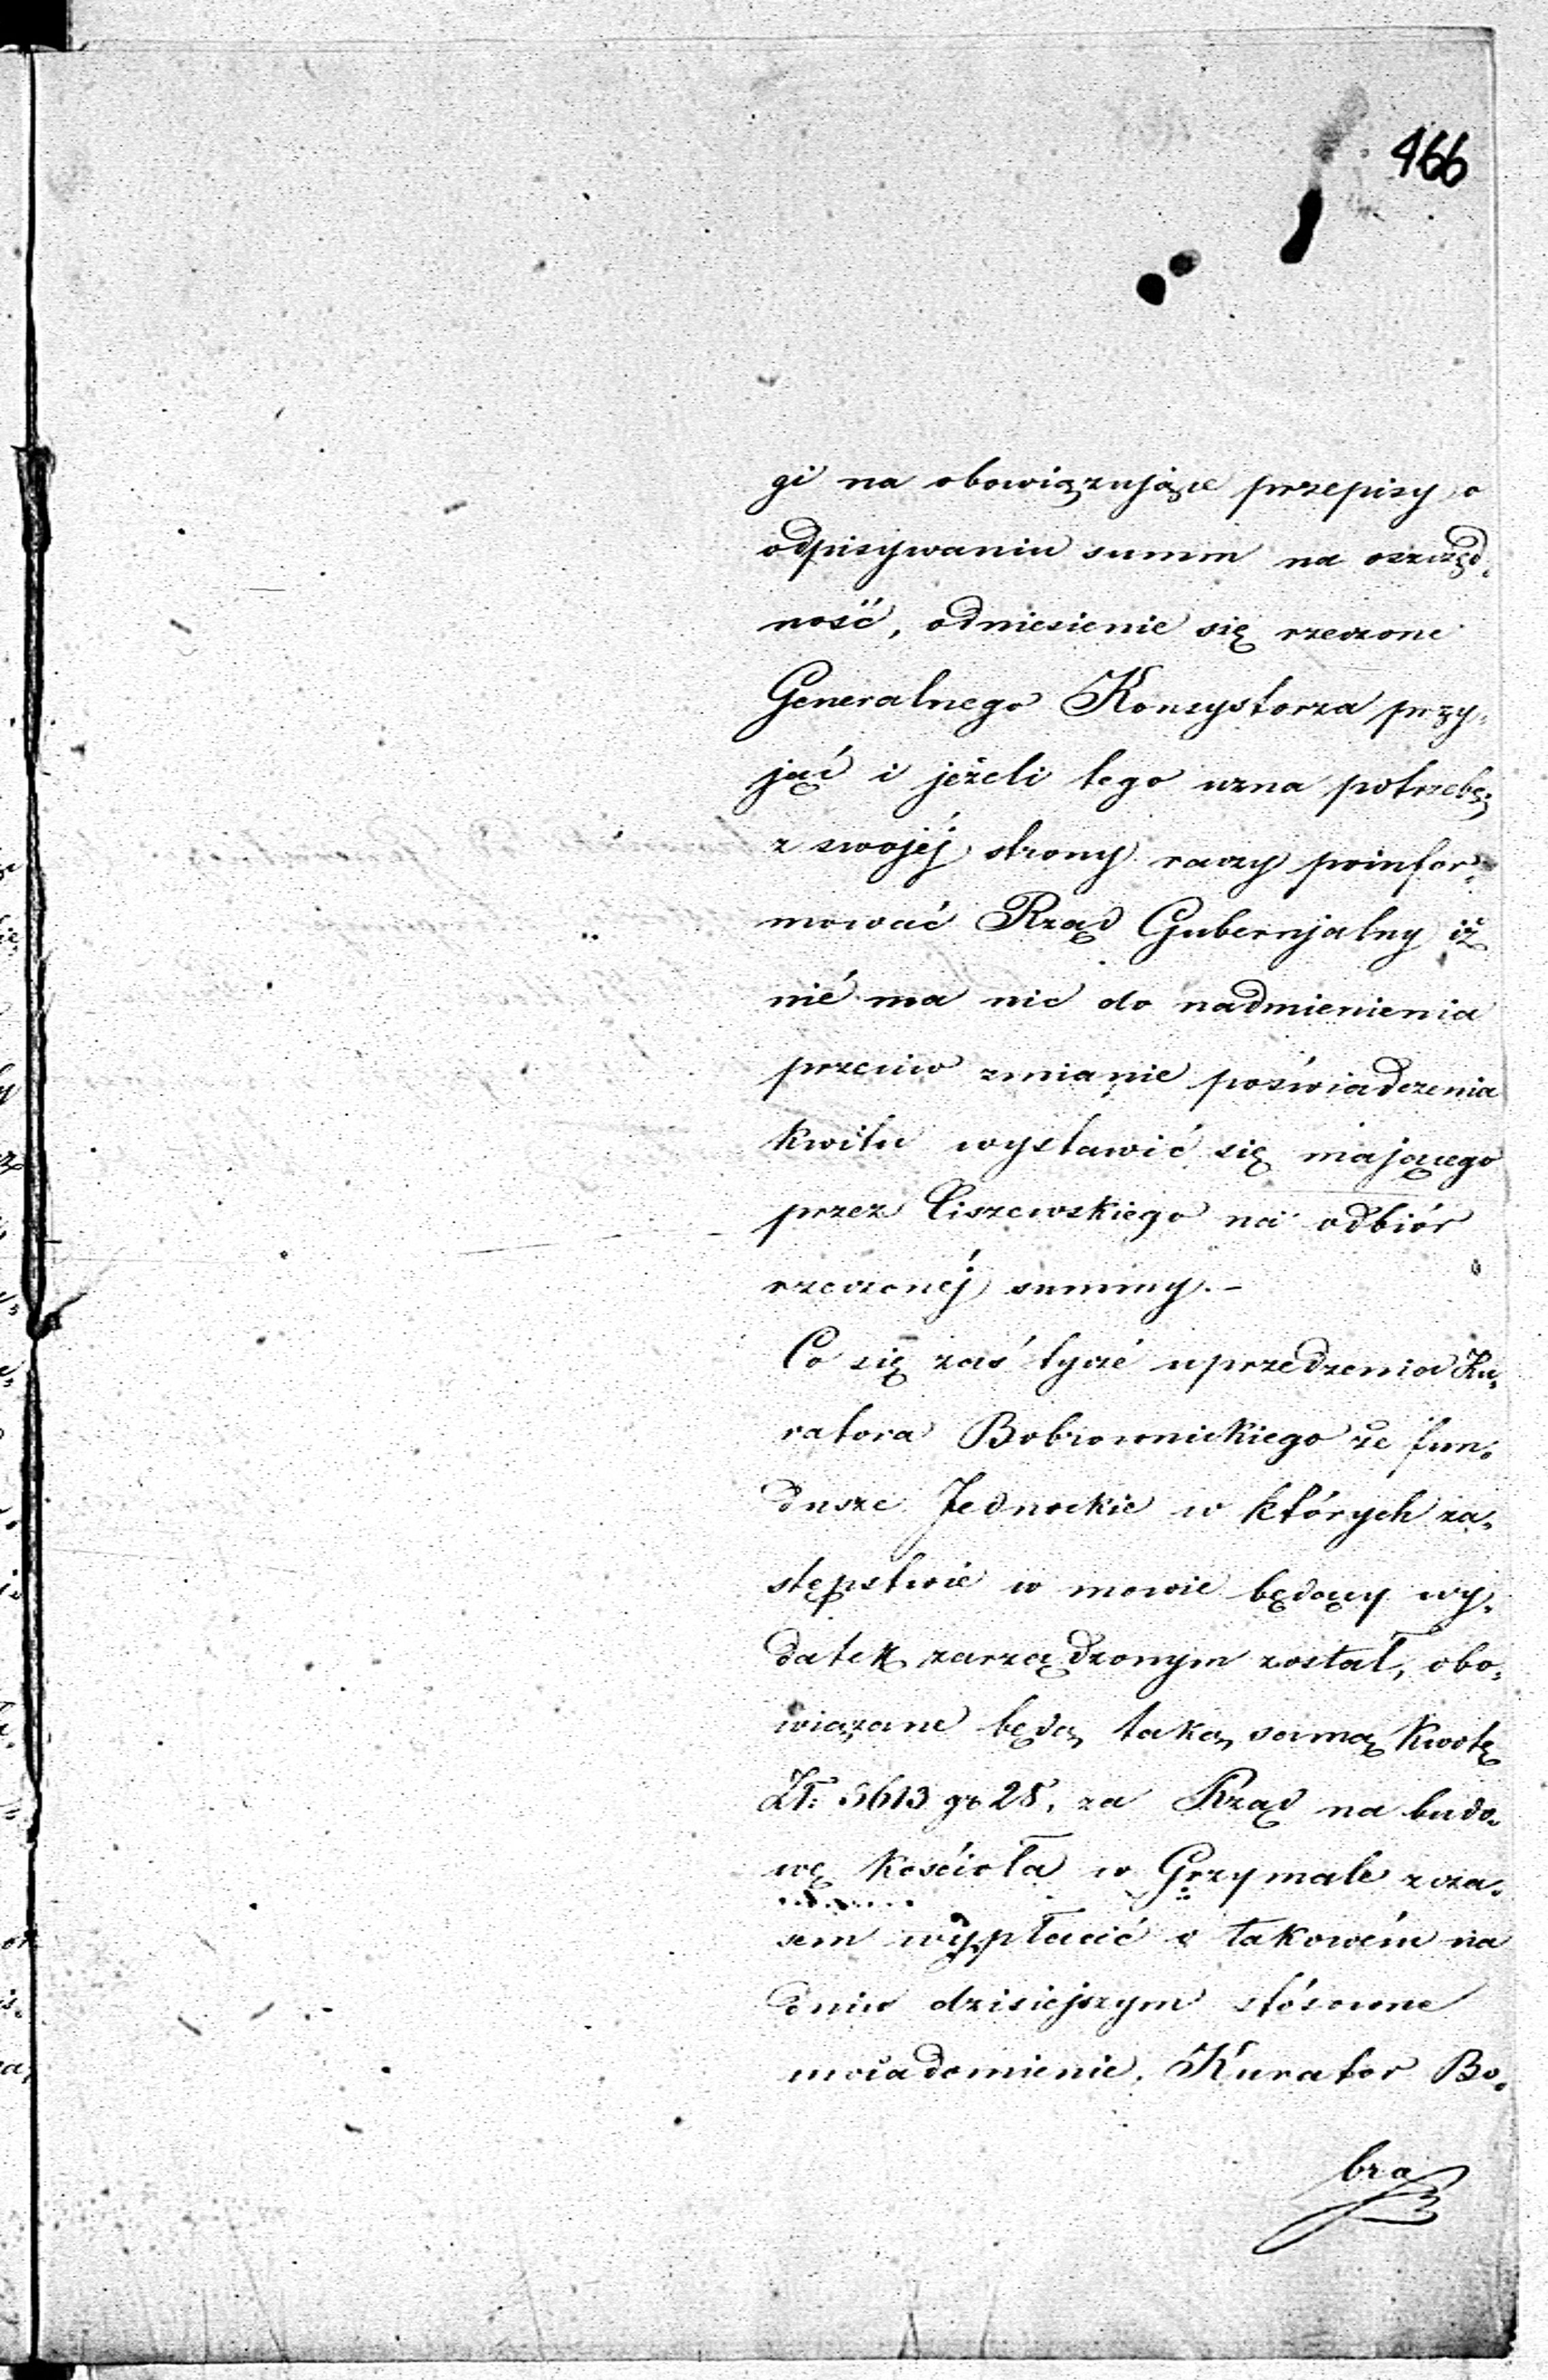 466
gi na obowiązujące przepisy o
odpisywaniu summ na oszczęd„
ność, odniesienie się rzeczone
Generalnego Konsystorza przy„
jąć i jeżeli tego uzna potrzebę
z swojéj strony raczy poinfor„
mować Rząd Gubernjalny iż
nié ma nic do nadmienienia
przeciw zmianie poświadczenia
kwitu wystawić się mającego
przez Ciszewskiego na odbiór
rzeczonéj summy.–
Co się zaś tycze uprzedzenia Ku„
ratora Bobrownickiego że fun„
dusze Jednockie w których za„
stępstwie w mowie będący wy„
datek zarządzonym został, obo„
wiązane będą taką samą kwotę
Zł: 3613 gr 28, za Rząd na budo„
wę kościoła w Grzymale zcza„
sem wypłacić o takowém na
dniu dzisiejszym stósowne
uwiadomienie, Kurator Bo„
bro